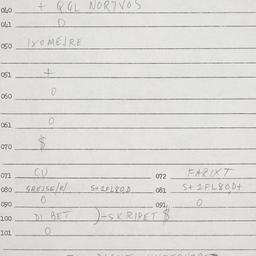 040 + QGL NOR7VOS
041 D
050 IXOMEJRE
051 +
060 0
061 0
070 $
071 CU 072 FARIXT
080 GREISE/R/ S+2FL80,D 081 S+2FL80,D+
090 0 091 0
100 DI BET )-SKRIPET $
101 0